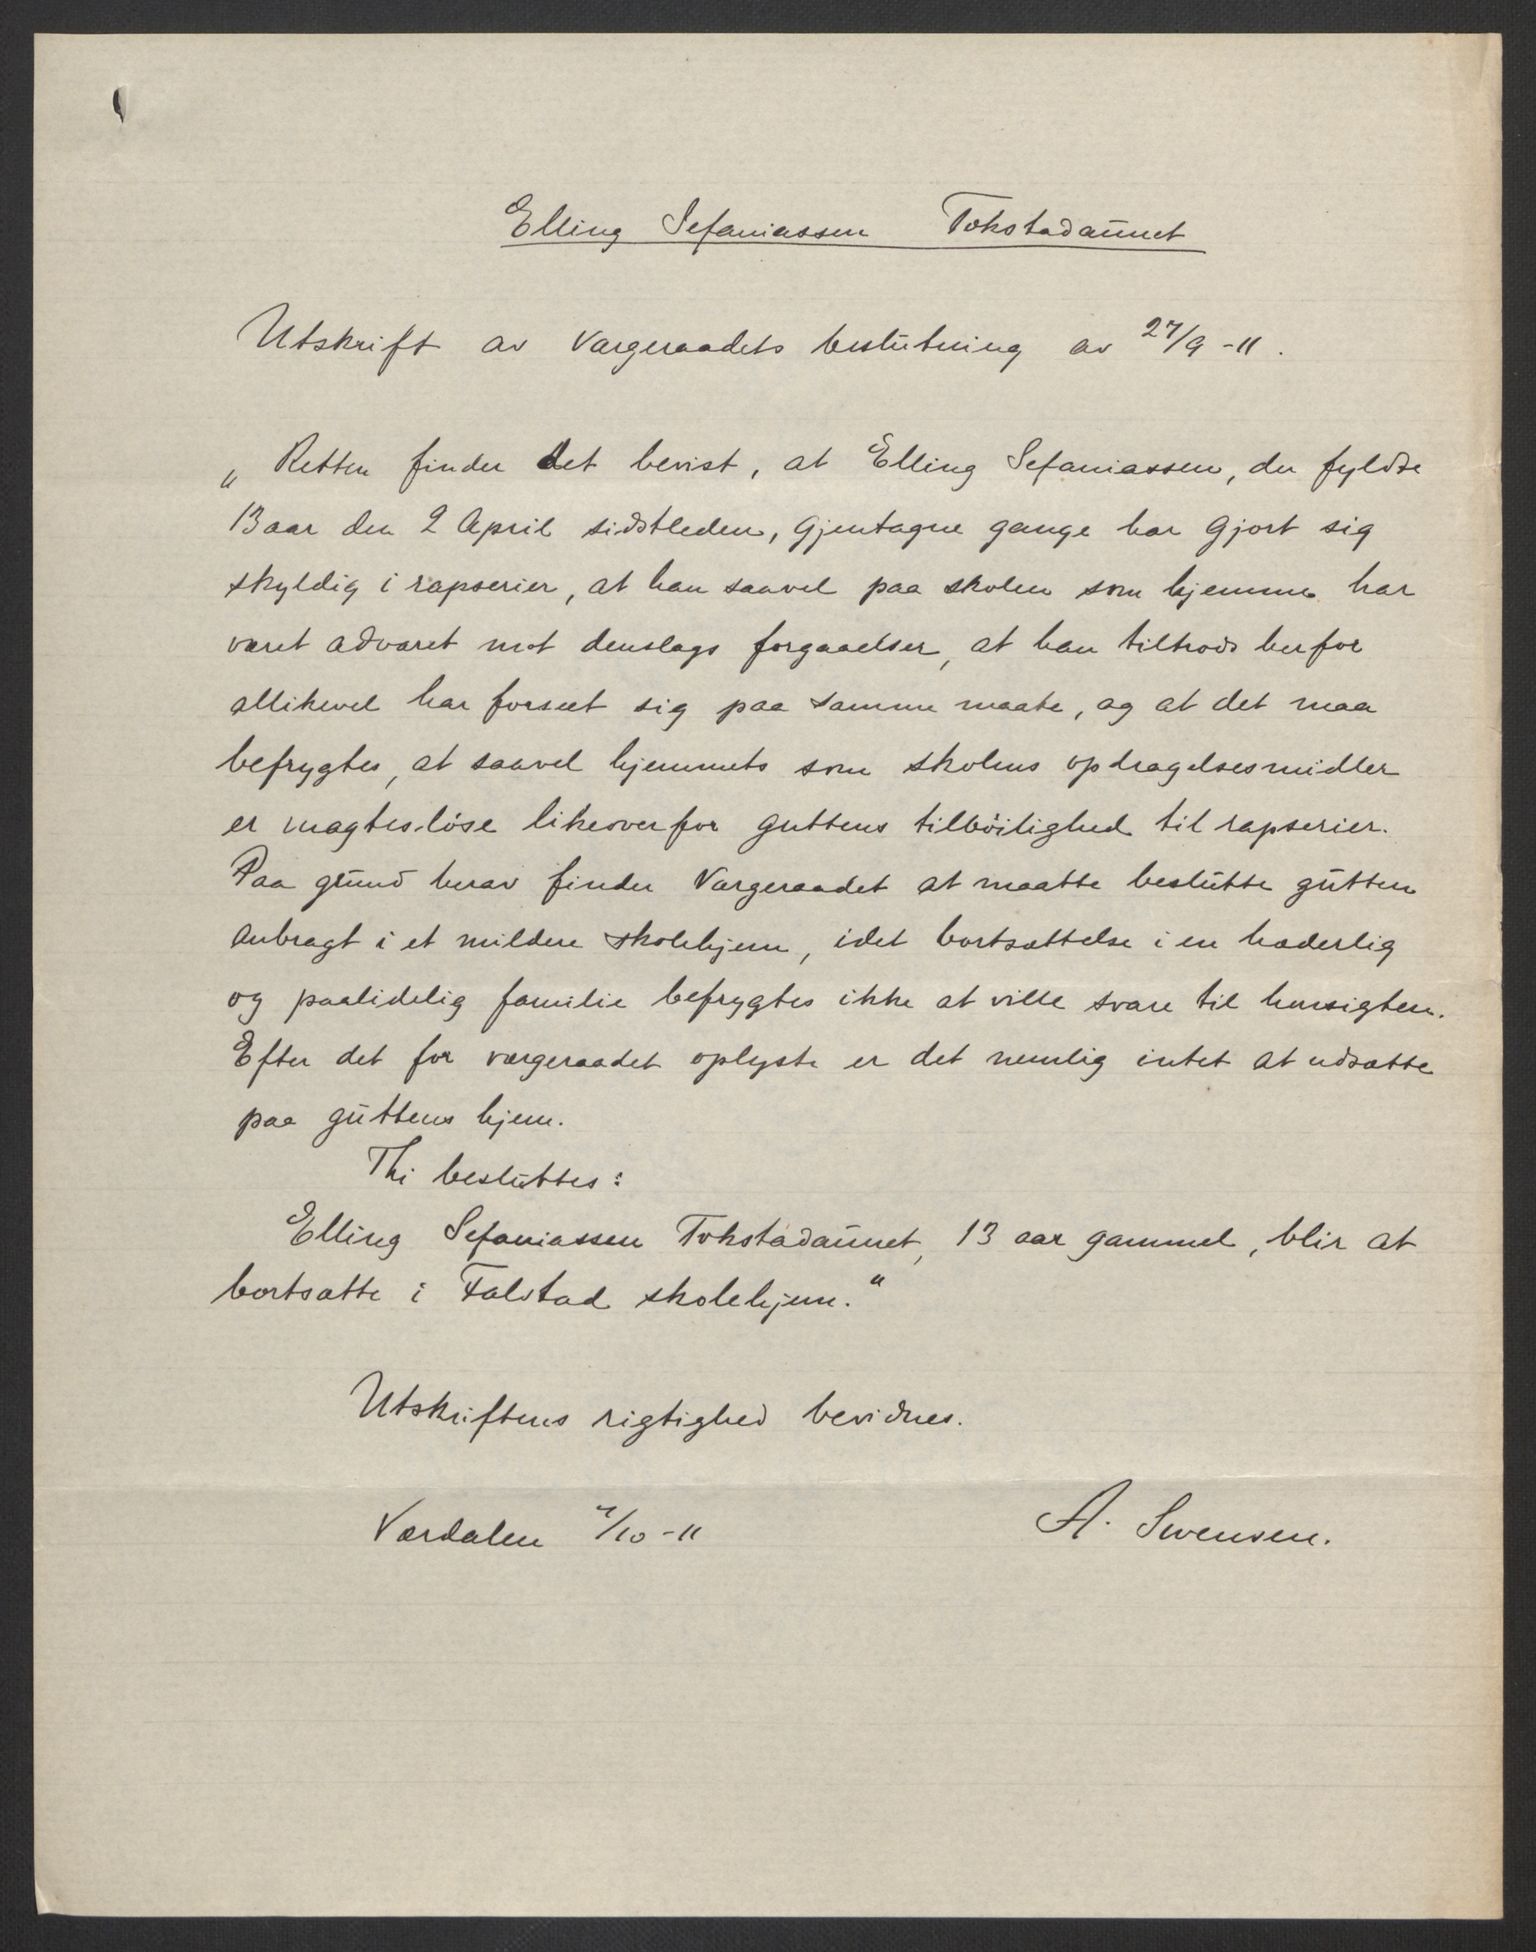 Elling Sefaniassen Tokstadaunet
Utskrift av Værgeraadets beslutning av 27/9 -11.
„Retten finder det bevist, at Elling Sefaniassen, der fyldte
13 aar den 2 April sidstleden, gjentagne gange har gjort sig
skyldig i rapserier, at han saavel paa skolen som hjemme har
været advaret mot denslags forgaaelser, at han tiltrods herfor
allikevel har forseet sig paa samme maate, og at det maa
befrygtes, at saavel hjemmets som skolens opdragelsesmidler
er magtesløse likeoverfor guttens tilbøilighed til rapserier.
Paa grund herav finder Værgeraadet at maatte beslutte gutten
anbragt i et mildere skolehjem, idet bortsættelse i en hæderlig
og paalidelig familie befrygtes ikke at ville svare til hensigten.
Efter det for værgeraadet oplyste er det nemlig intet at udsætte
paa guttens hjem.
Thi besluttes:
Elling Sefaniassen Tokstadaunet, 13 aar gammel, blir at
bortsætte i Falstad skolehjem.“
Utskriftens rigtighed bevidnes.
Værdalen 7/10 -11 A. Swensen.